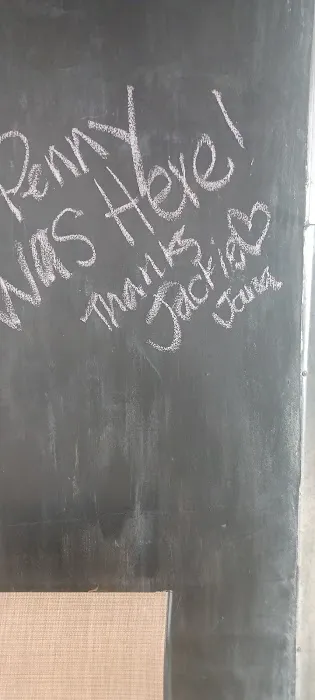 Penny
Was Here!
Thanks
Jackie